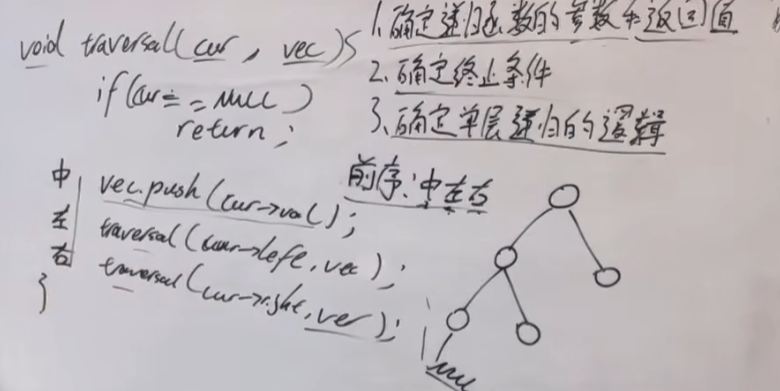 void traversal(cur, vec){
if(cur == NULL)
return;
中 vec.push(cur->val);
左 traversal(cur->left, vec);
右 traversal(cur->right, vec);
}
1、确定递归函数的参数和返回值
2、确定终止条件
3、确定单层递归的逻辑
前序:中左右
NULL